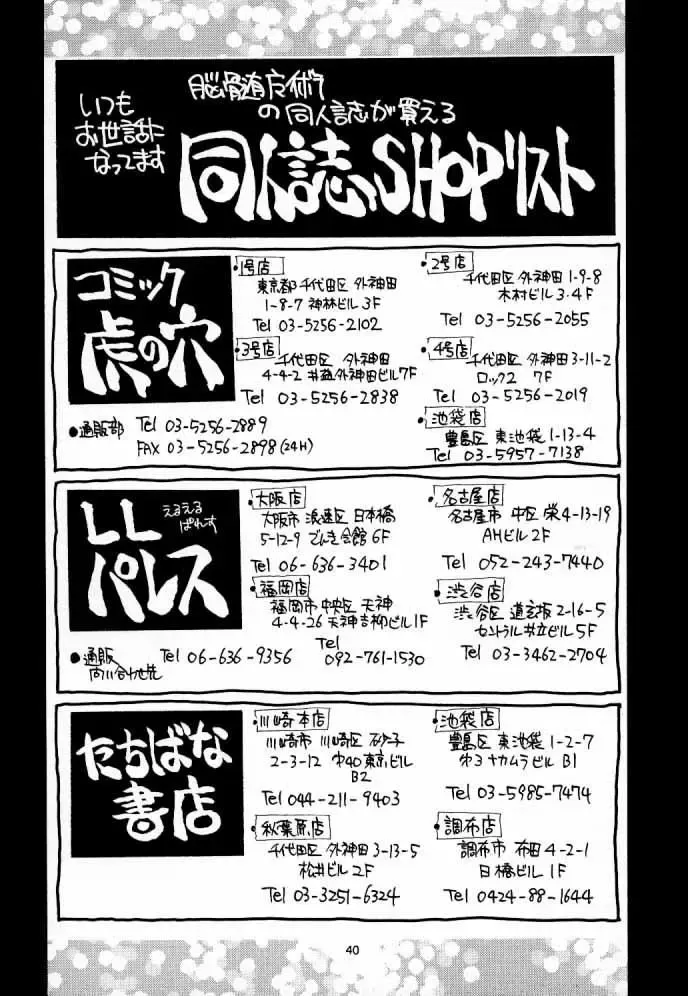 いつも
お世話に
なってます
脳髄魔術
の同人誌が買える
同人誌SHOPリスト
コミック
虎の穴
・1号店
東京都千代田区 外神田
1-8-7 神林ビル3F
Tel 03-5256-2102
・2号店
千代田区 外神田 1-9-8
木村ビル 3・4F
Tel 03-5256-2055
・3号店
千代田区 外神田
4-4-2 外神田ビル7F
Tel 03-5256-2838
・4号店
千代田区 外神田3-11-2
ロック2 7F
Tel 03-5256-2019
●通販部 Tel 03-5256-2889
FAX 03-5256-2898(24H)
・池袋店
豊島区 東池袋1-13-4
Tel 03-5957-7138
LL
パレス
えるえる
ぱれす
・大阪店
大阪市 浪速区 日本橋
5-12-9 でんき会館 6F
Tel 06-636-3401
・名古屋店
名古屋市 中区 栄4-13-19
AHビル2F
Tel 052-243-7440
・福岡店
福岡市中央区 天神
4-4-26 天神吉柳ビル1F
Tel
092-761-1530
・渋谷店
渋谷区 道玄坂2-16-5
セントラル井立ビル5F
Tel 03-3462-2704
●通販
問い合わせ先
Tel 06-636-9356
たちばな
書店
・川崎本店
川崎市 川崎区 砂子
2-3-12 オ40東京ビル
B2
Tel 044-211-9403
・池袋店
豊島区 東池袋1-2-7
オ3ナカムラビル B1
Tel 03-5985-7474
・秋葉原店
千代田区 外神田3-13-5
松井ビル2F
Tel 03-3251-6324
・調布店
調布市 布田4-2-1
日橋ビル1F
Tel 0424-88-1644
40